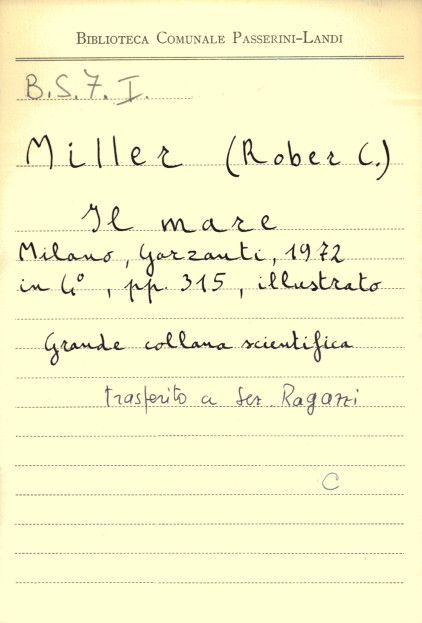 BIBLIOTECA COMUNALE PASSERINI-LANDI
B.S.7.I.
Miller (Rober C.)
Il mare
Milano, Garzanti, 1972
in 4°, pp. 315, illustrato
Grande collana scientifica
trasferito a Sez. Ragazzi
C